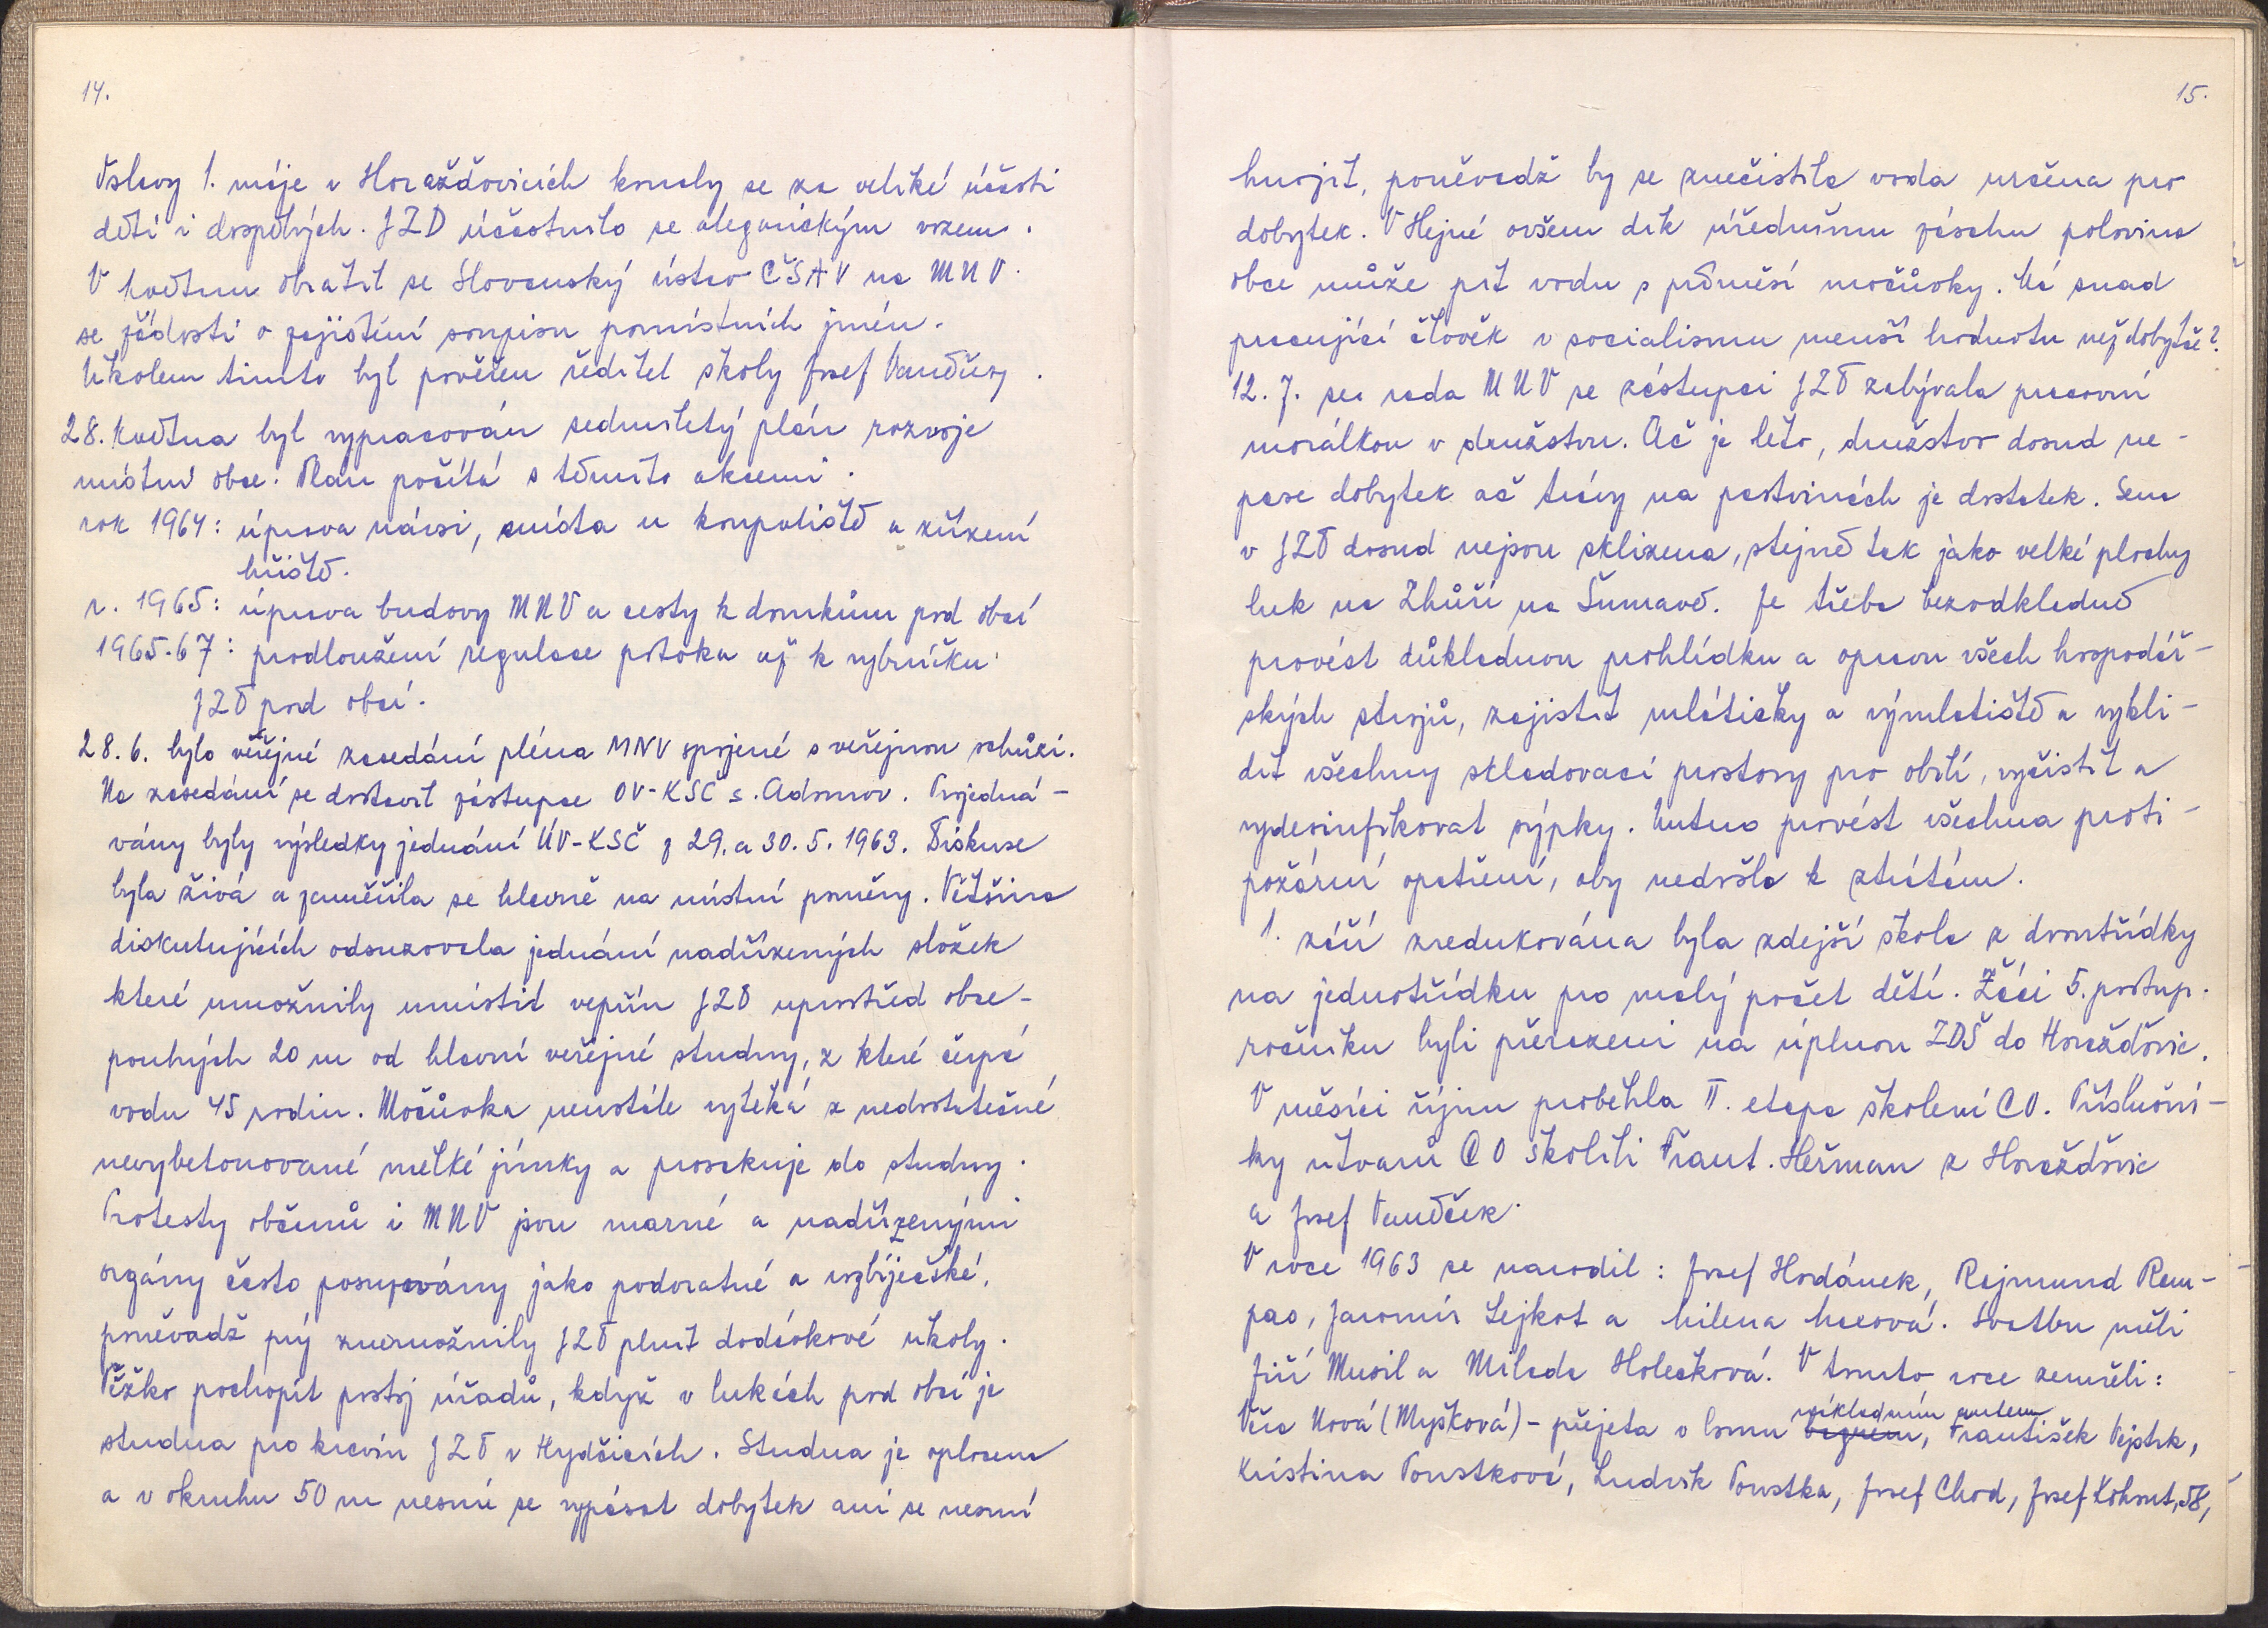 14.
Oslavy 1. máje v Horažďovicích konaly se za veliké účasti
dětí i dospělých. JZD účastnilo se alegorickým vozem.
V květnu obrátil se Slovanský ústav ČSAV na MNV
se žádostí o zajištění soupisu pomístních jmén.
Úkolem tímto byl pověřen ředitel školy Josef
28. května byl vypracován sedmiletý plán rozvoje
místní obce. Plán počítá s těmito akcemi.
rok 1964: úprava návsi, místa u koupaliště a zřízení
hřiště.
r. 1965: úprava budovy MNV a cesty k domkům pod obcí
1965-67: prodloužení regulace potoka až k rybníčku
JZD pod obcí.
28.6. bylo veřejné zasedání pléna MNV spojené s veřejnou schůzí.
Na zasedání se dostavil zástupce OV-KSČ s. Adamov. Projedná-
vány byly výsledky jednání ÚV-KSČ z 29. a 30.5.1963. Diskuse
byla živá a zaměřila se hlavně na místní poměry. Většina
diskutujících odsuzovala jednání nadřízených složek
které umožnily umístit vepřín JZD uprostřed obce -
pouhých 20 m od hlavní veřejné studny, z které čerpá
vodu 45 rodin. Močůvka neustále vytéká z nedostatečné
nevybetonované mělké jímky a prosakuje do studny.
Protesty občanů i MNV jsou marné a nadřízenými
orgány často posuzovány jako podvratné a rozbíječské,
poněvadž prý znemožnily JZD plnit dodávkové úkoly.
Těžko pochopit postoj úřadů, když v lukách pod obcí je
studna pro kravín JZD v Hydčicích. Studna je oplocena
a v okruhu 50 m nesmí se vypásat dobytek ani se nesmí
15.
hnojit, poněvadž by se znečistila voda určena pro
dobytek. V Hejné ovšem dík úřednímu zásahu polovina
obce může pít vodu s příměsí močůvky. Má snad
pracující člověk v socialismu menší hodnotu než dobytče?
12.7. rada MNV se zástupci JZD zabývala pracovní
morálkou v družstvu. Ač je léto, družstvo dosud ne-
pase dobytek ač trávy na pastvinách je dostatek. Sena
v JZD dosud nejsou sklizena, stejně tak jako velké plochy
luk na Zhůří na Šumavě. Je třeba bezodkladně
provést důkladnou prohlídku a opravu všech hospodář-
ských strojů, zajistit mlátičky a výmlatiště a vykli-
dit všechny skladovací prostory pro obilí, vyčistit a
vydesinfikovat sýpky. Nutno provést všechna proti-
požární opatření, aby nedošlo k ztrátám.
1. září zredukována byla zdejší škola z dvoutřídky
na jednotřídku pro malý počet dětí. Žáci 5. postup.
ročníku byli přeřazeni na úplnou ZDŠ do Horažďovic.
V měsíci říjnu proběhla II. etapa školení CO. Příslušní-
ky útvarů CO školili Frant. Heřman z Horažďovic
a Josef Vaněček.
V roce 1963 se narodil: Josef Hodánek, Rajmund Rem-
pas, Jaromír Lejkot a Milena Macová. Svatbu měli
Jiří Musil a Milada Holečková. V tomto roce zemřeli:
nákladním autem
Věra Nová (Myšková) - přejeta v lomu vagonem, František Vejstrk,
Kristina Poustková, Ludvík Poustka, Josef Chod, Josef Kohout, 58,